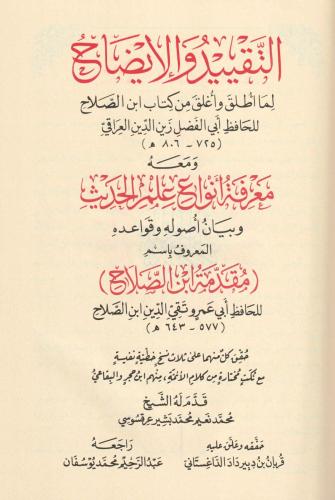 التقييد والإيضاح
لما أطلق وأغلق من كتاب ابن الصلاح
للحافظ أبي الفضل زين الدين العراقي
(٧٢٥ - ٨٠٦ هـ)
ومعه
معرفة أنواع علم الحديث
وبيان أصوله وقواعده
المعروف باسم
(مقدمة ابن الصلاح)
للحافظ أبي عمرو تقي الدين ابن الصلاح
(٥٧٧ - ٦٤٣ هـ)
حقق كل منهما على ثلاث نسخ خطية نفيسة
مع نكت مختارة من كلام الأئمة، منهم ابن حجر والبقاعي
قدم له الشيخ
محمد نعيم محمد بشير عرقسوسي
حققه وعلق عليه
قربان بن دبير داد الداغستاني
راجعه
عبد الرحيم محمد يوسفان